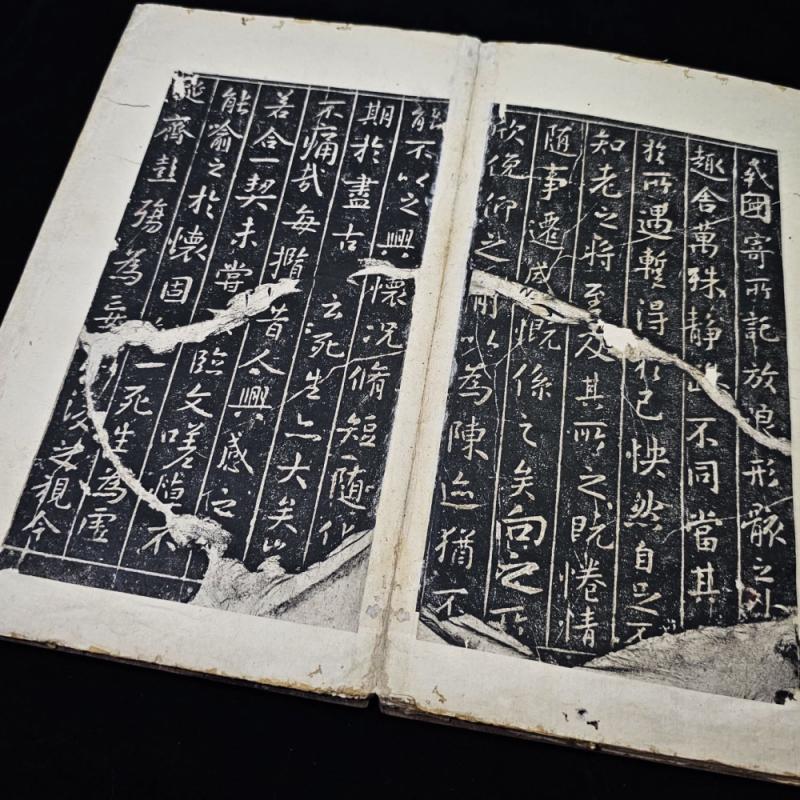 或因寄所託放浪形骸之外
趣舍萬殊静不同當其
於所遇暫得於己怏然自足不
知老之將至及其所之既惓情
随事遷感慨係之矣向之所
欣俛仰之間以為陳迹猶不
能不以之興懷況脩短随化
期於盡古云死生亦大矣
不痛哉每攬昔人興感之
若合一契未嘗臨文嗟悼不
能喻之於懷固一死生為虛
誕齊彭殤為妄後之視今